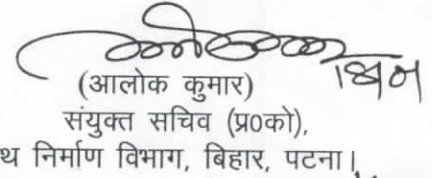 (आलोक कुमार)
संयुक्त सचिव (प्र०को),
थ निर्माण विभाग, बिहार, पटना।